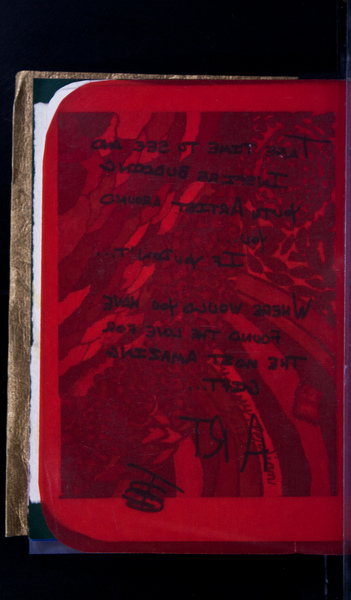 TAKE TIME TO SEE AND
INSPIRE BUDDING
YOUTH ARTIST AROUND
YOU...
IF YOU DON'T...
WHERE WOULD YOU HAVE
FOUND THE LOVE FOR
THE MOST AMAZING
GIFT...
ART